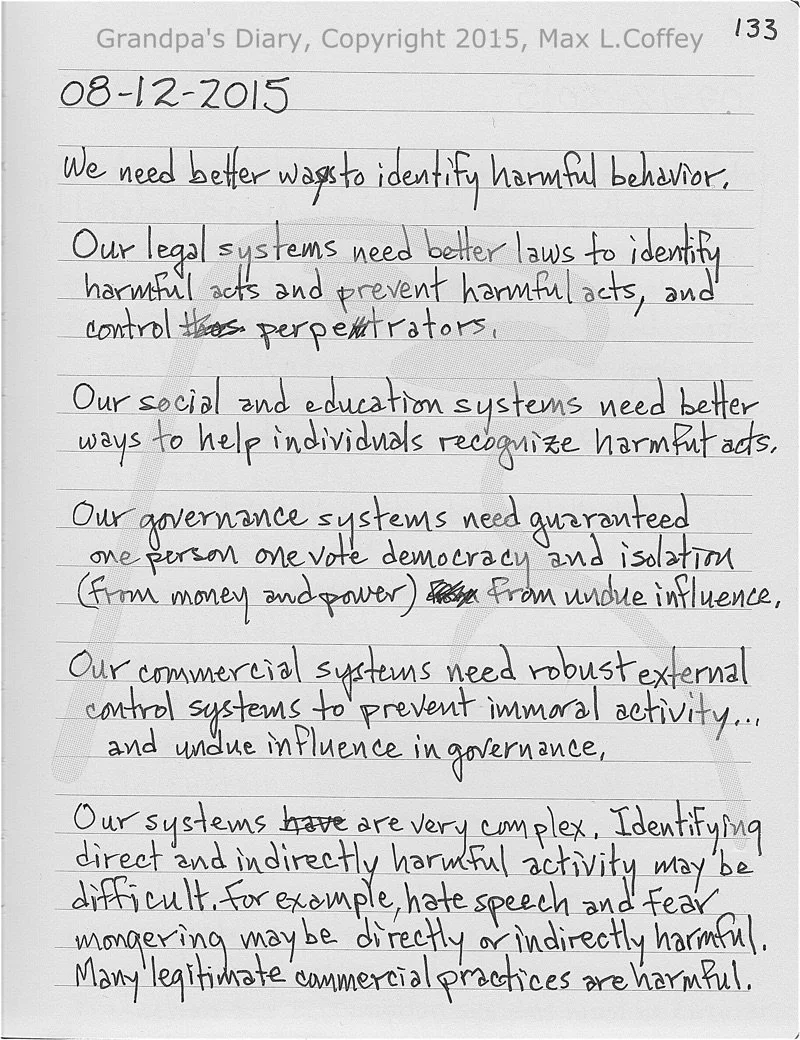 133
Grandpa's Diary, Copyright 2015, Max L.Coffey
08-12-2015
We need better ways to identify harmful behavior.
Our legal systems need better laws to identify
harmful acts and prevent harmful acts, and
control perpetrators.
Our social and education systems need better
ways to help individuals recognize harmful acts.
Our governance systems need guaranteed
one person one vote democracy and isolation
(from money and power) from undue influence.
Our commercial systems need robust external
control systems to prevent immoral activity...
and undue influence in governance.
Our systems have are very complex. Identifying
direct and indirectly harmful activity may be
difficult. For example, hate speech and fear
mongering may be directly or indirectly harmful.
Many legitimate commercial practices are harmful.